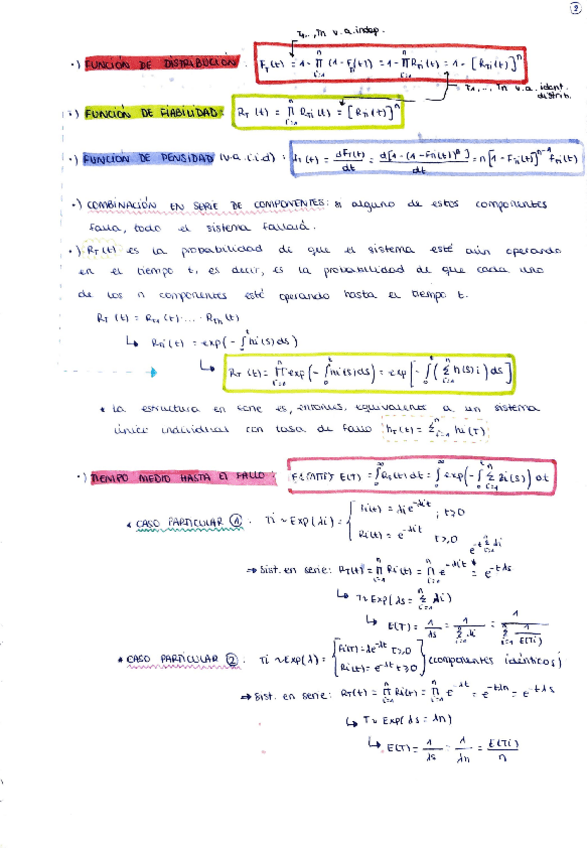 2
T₁, .., Tn v.a. indep.
·) FUNCIÓN DE DISTRIBUCIÓN: F_T(t) = 1 - ∏_{i=1}^n (1 - F_{Ti}(t)) = 1 - ∏_{i=1}^n R_{Ti}(t) = 1 - [R_{Ti}(t)]^n
T₁, .., Tn v.a. ident. distrib.
·) FUNCIÓN DE FIABILIDAD: R_T(t) = ∏_{i=1}^n R_{Ti}(t) = [R_{Ti}(t)]^n
·) FUNCIÓN DE DENSIDAD (v.a.i.i.d): f_T(t) = dF_T(t)/dt = d[1-(1-F_{Ti}(t))^n]/dt = n[1-F_{Ti}(t)]^{n-1} f_{Ti}(t)
·) COMBINACIÓN EN SERIE DE COMPONENTES: si alguno de estos componentes
falla, todo el sistema fallará.
·) R_T(t) es la probabilidad de que el sistema esté aún operando
en el tiempo t, es decir, es la probabilidad de que cada uno
de los n componentes esté operando hasta el tiempo t.
R_T(t) = R_{T1}(t) ··· R_{Tn}(t)
↳ R_{Ti}(t) = exp(-∫_0^t hi(s)ds)
↳ R_T(t) = ∏_{i=1}^n exp(-∫_0^t hi(s)ds) = exp[-∫_0^t (∑_{i=1}^n h(s)i)ds]
* La estructura en serie es, entonces, equivalente a un sistema
único individual con tasa de fallo h_T(t) = ∑_{i=1}^n hi(t)
·) TIEMPO MEDIO HASTA EL FALLO: E(T) = ∫_0^∞ R_T(t)dt = ∫_0^∞ exp(-∫_0^t ∑_{i=1}^n λi(s)) dt
* CASO PARTICULAR ①. Ti ~ Exp(λi) = { fi(t) = λi e^{-λit}; t>0
Ri(t) = e^{-λit} t>0
⇒ Sist. en serie: R_T(t) = ∏_{i=1}^n Ri(t) = ∏_{i=1}^n e^{-λit} = e^{-t∑_{i=1}^n λi} = e^{-tλs}
↳ T ~ Exp(λs = ∑_{i=1}^n λi)
↳ E(T) = 1/λs = 1/∑_{i=1}^n λi = 1/∑_{i=1}^n 1/E(Ti)
* CASO PARTICULAR ②. Ti ~ Exp(λ) = { fi(t) = λe^{-λt} t>0
Ri(t) = e^{-λt} t>0 } (componentes idénticos)
⇒ Sist. en serie: R_T(t) = ∏_{i=1}^n Ri(t) = ∏_{i=1}^n e^{-λt} = e^{-tλn} = e^{-tλs}
↳ T ~ Exp(λs = λn)
↳ E(T) = 1/λs = 1/λn = E(Ti)/n